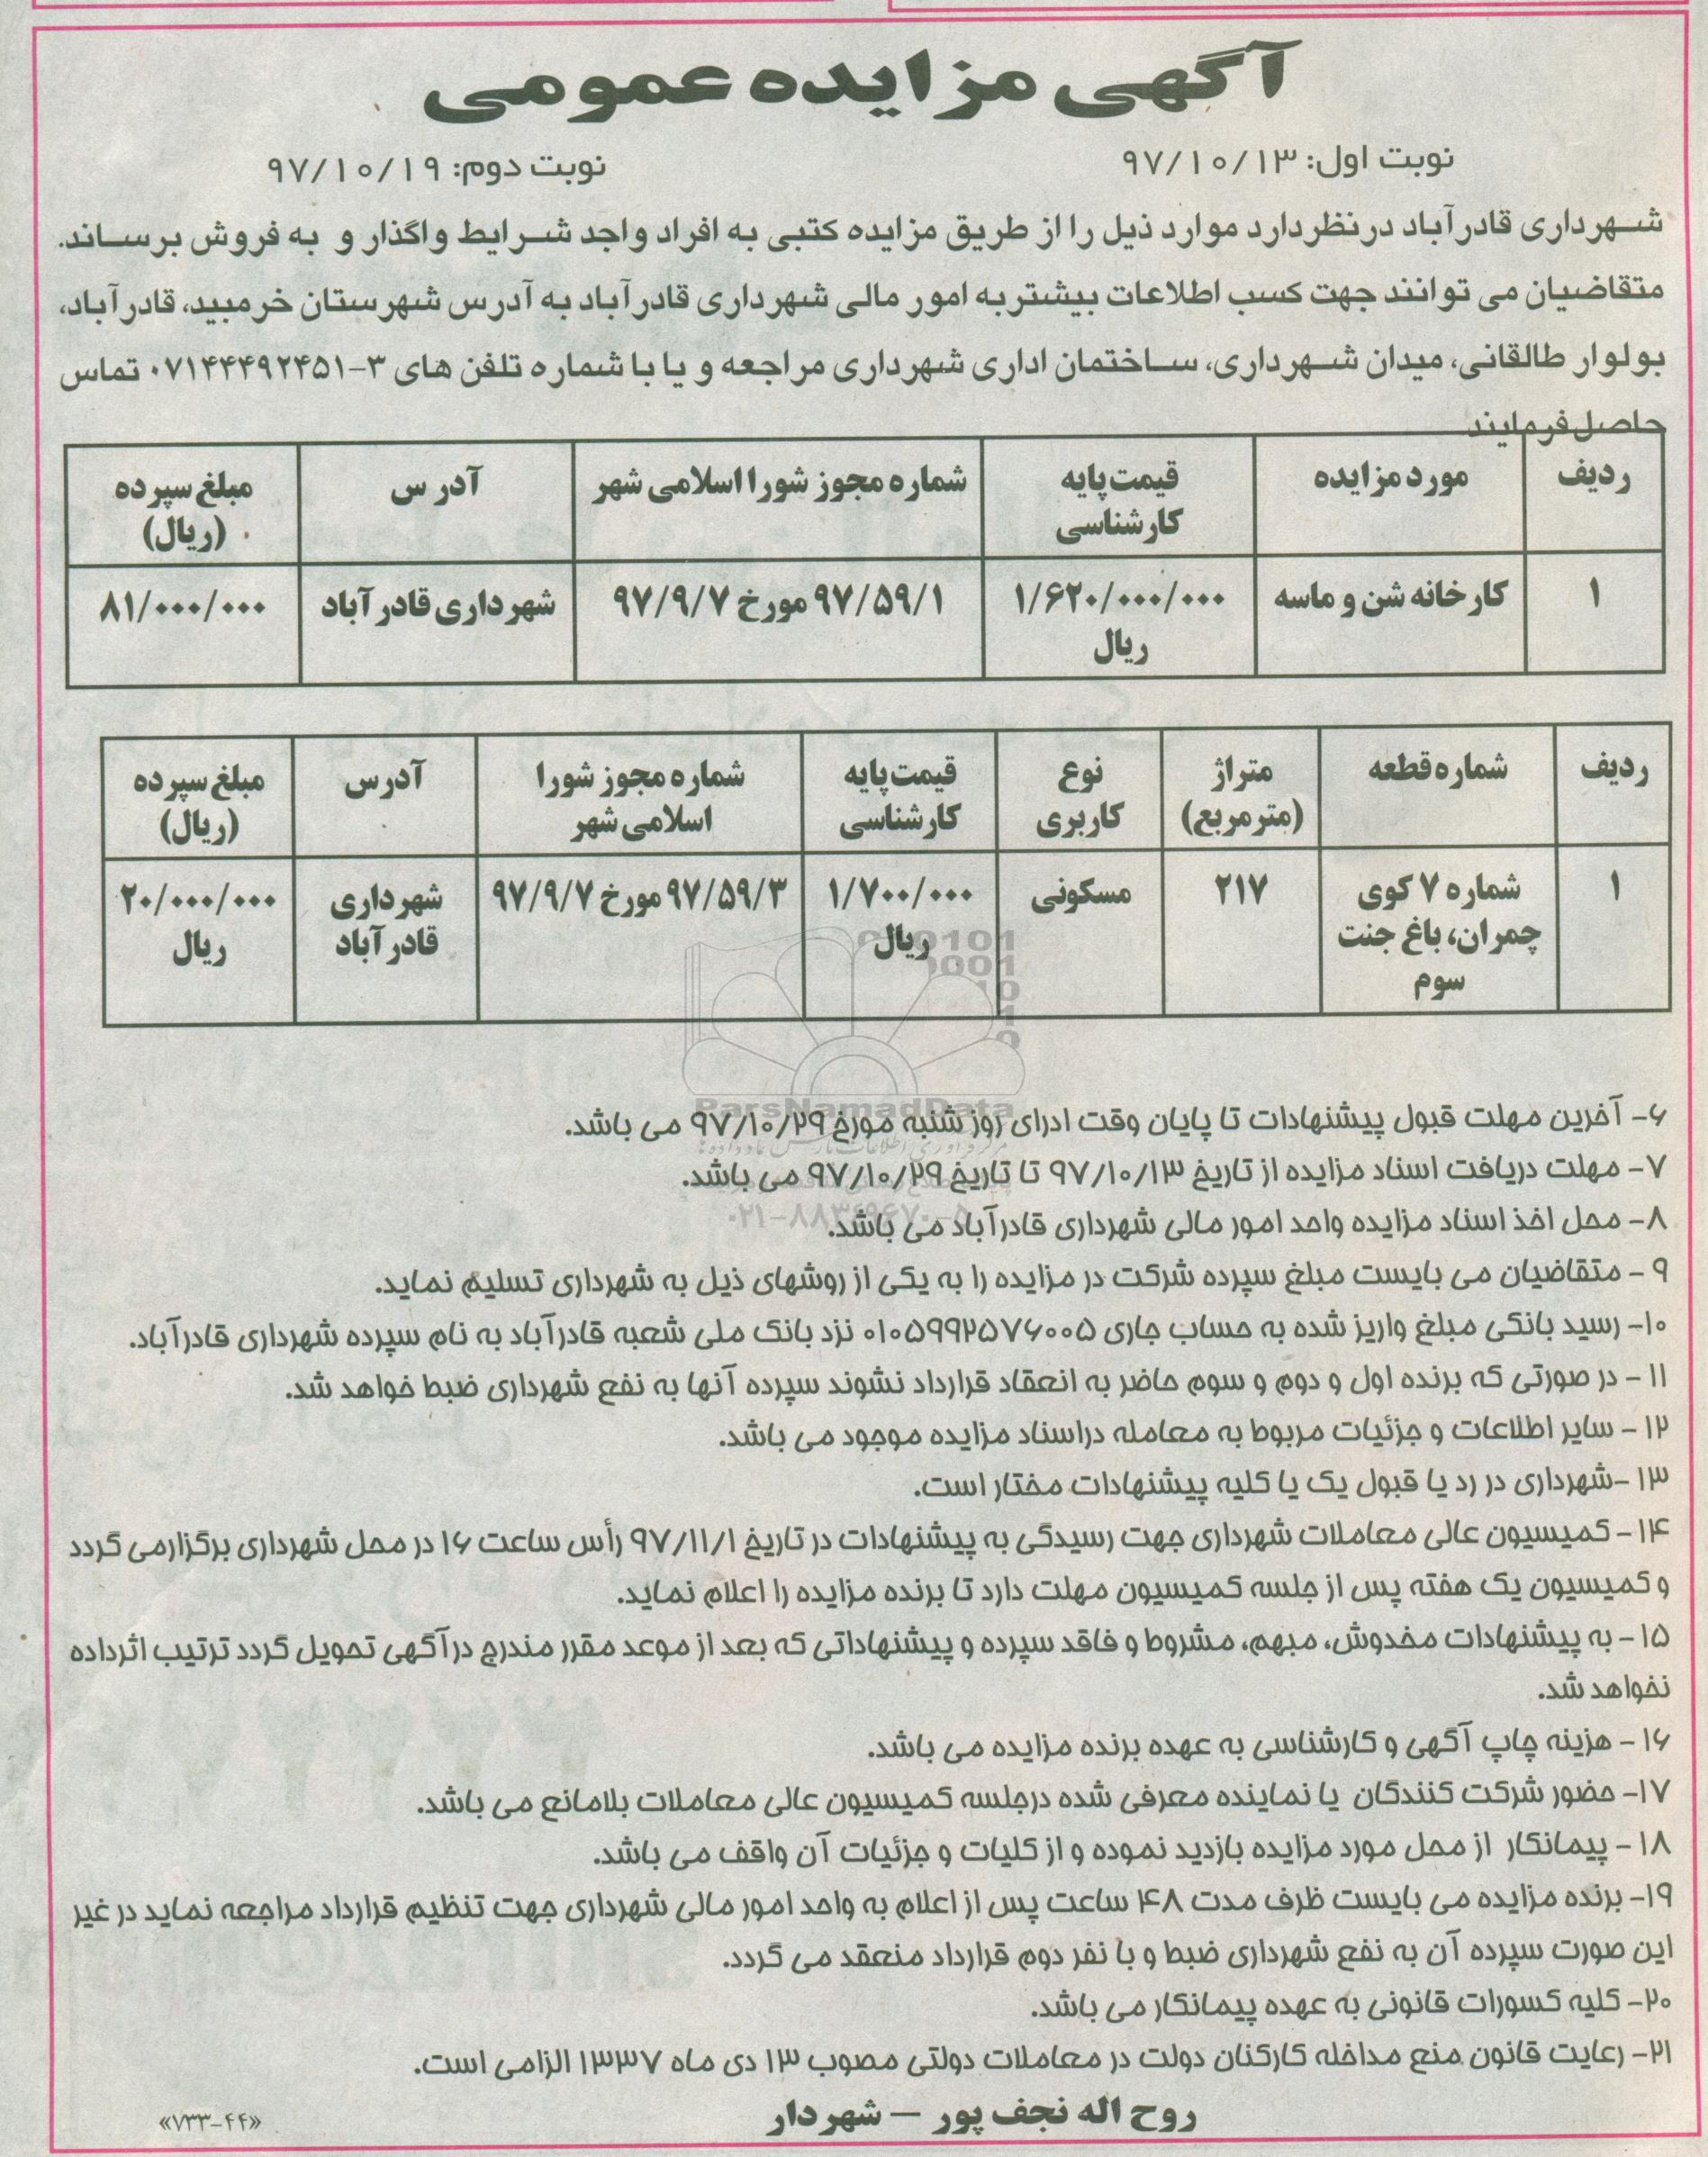 آگهی مزایده عمومی
نوبت اول: ۹۷/۱۰/۱۳
نوبت دوم: ۹۷/۱۰/۱۹
شهرداری قادرآباد درنظردارد موارد ذیل را از طریق مزایده کتبی به افراد واجد شرایط واگذار و به فروش برساند.
متقاضیان می توانند جهت کسب اطلاعات بیشتربه امور مالی شهرداری قادرآباد به آدرس شهرستان خرمبید، قادرآباد،
بولوار طالقانی، میدان شهرداری، ساختمان اداری شهرداری مراجعه و یا با شماره تلفن های ۳-۰۷۱۴۴۴۹۲۴۵۱ تماس
حاصل فرمایند
ردیف | مورد مزایده | قیمت پایه کارشناسی | شماره مجوز شورا اسلامی شهر | آدرس | مبلغ سپرده (ریال)
۱ | کارخانه شن و ماسه | ۱/۶۲۰/۰۰۰/۰۰۰ ریال | ۹۷/۵۹/۱ مورخ ۹۷/۹/۷ | شهرداری قادرآباد | ۸۱/۰۰۰/۰۰۰
ردیف | شماره قطعه | متراژ (مترمربع) | نوع کاربری | قیمت پایه کارشناسی | شماره مجوز شورا اسلامی شهر | آدرس | مبلغ سپرده (ریال)
۱ | شماره ۷ کوی چمران، باغ جنت سوم | ۲۱۷ | مسکونی | ۱/۷۰۰/۰۰۰ ریال | ۹۷/۵۹/۳ مورخ ۹۷/۹/۷ | شهرداری قادرآباد | ۲۰/۰۰۰/۰۰۰ ریال
ParsNamadData
۶- آخرین مهلت قبول پیشنهادات تا پایان وقت ادرای روز شنبه مورخ ۹۷/۱۰/۲۹ می باشد.
۷- مهلت دریافت اسناد مزایده از تاریخ ۹۷/۱۰/۱۳ تا تاریخ ۹۷/۱۰/۲۹ می باشد.
۸- محل اخذ اسناد مزایده واحد امور مالی شهرداری قادرآباد می باشد.
۹ - متقاضیان می بایست مبلغ سپرده شرکت در مزایده را به یکی از روشهای ذیل به شهرداری تسلیم نماید.
۱۰- رسید بانکی مبلغ واریز شده به حساب جاری ۰۱۰۵۹۹۲۵۷۶۰۰۵ نزد بانک ملی شعبه قادرآباد به نام سپرده شهرداری قادرآباد.
۱۱ - در صورتی که برنده اول و دوم و سوم حاضر به انعقاد قرارداد نشوند سپرده آنها به نفع شهرداری ضبط خواهد شد.
۱۲ - سایر اطلاعات و جزئیات مربوط به معامله دراسناد مزایده موجود می باشد.
۱۳ -شهرداری در رد یا قبول یک یا کلیه پیشنهادات مختار است.
۱۴- کمیسیون عالی معاملات شهرداری جهت رسیدگی به پیشنهادات در تاریخ ۹۷/۱۱/۱ رأس ساعت ۱۶ در محل شهرداری برگزارمی گردد
و کمیسیون یک هفته پس از جلسه کمیسیون مهلت دارد تا برنده مزایده را اعلام نماید.
۱۵ - به پیشنهادات مخدوش، مبهم، مشروط و فاقد سپرده و پیشنهاداتی که بعد از موعد مقرر مندرج درآگهی تحویل گردد ترتیب اثرداده
نخواهد شد.
۱۶ - هزینه چاپ آگهی و کارشناسی به عهده برنده مزایده می باشد.
۱۷- حضور شرکت کنندگان یا نماینده معرفی شده درجلسه کمیسیون عالی معاملات بلامانع می باشد.
۱۸ - پیمانکار از محل مورد مزایده بازدید نموده و از کلیات و جزئیات آن واقف می باشد.
۱۹- برنده مزایده می بایست ظرف مدت ۴۸ ساعت پس از اعلام به واحد امور مالی شهرداری جهت تنظیم قرارداد مراجعه نماید در غیر
این صورت سپرده آن به نفع شهرداری ضبط و با نفر دوم قرارداد منعقد می گردد.
۲۰- کلیه کسورات قانونی به عهده پیمانکار می باشد.
۲۱- رعایت قانون منع مداخله کارکنان دولت در معاملات دولتی مصوب ۱۳ دی ماه ۱۳۳۷ الزامی است.
روح اله نجف پور — شهردار
«۷۳۳-۴۴»